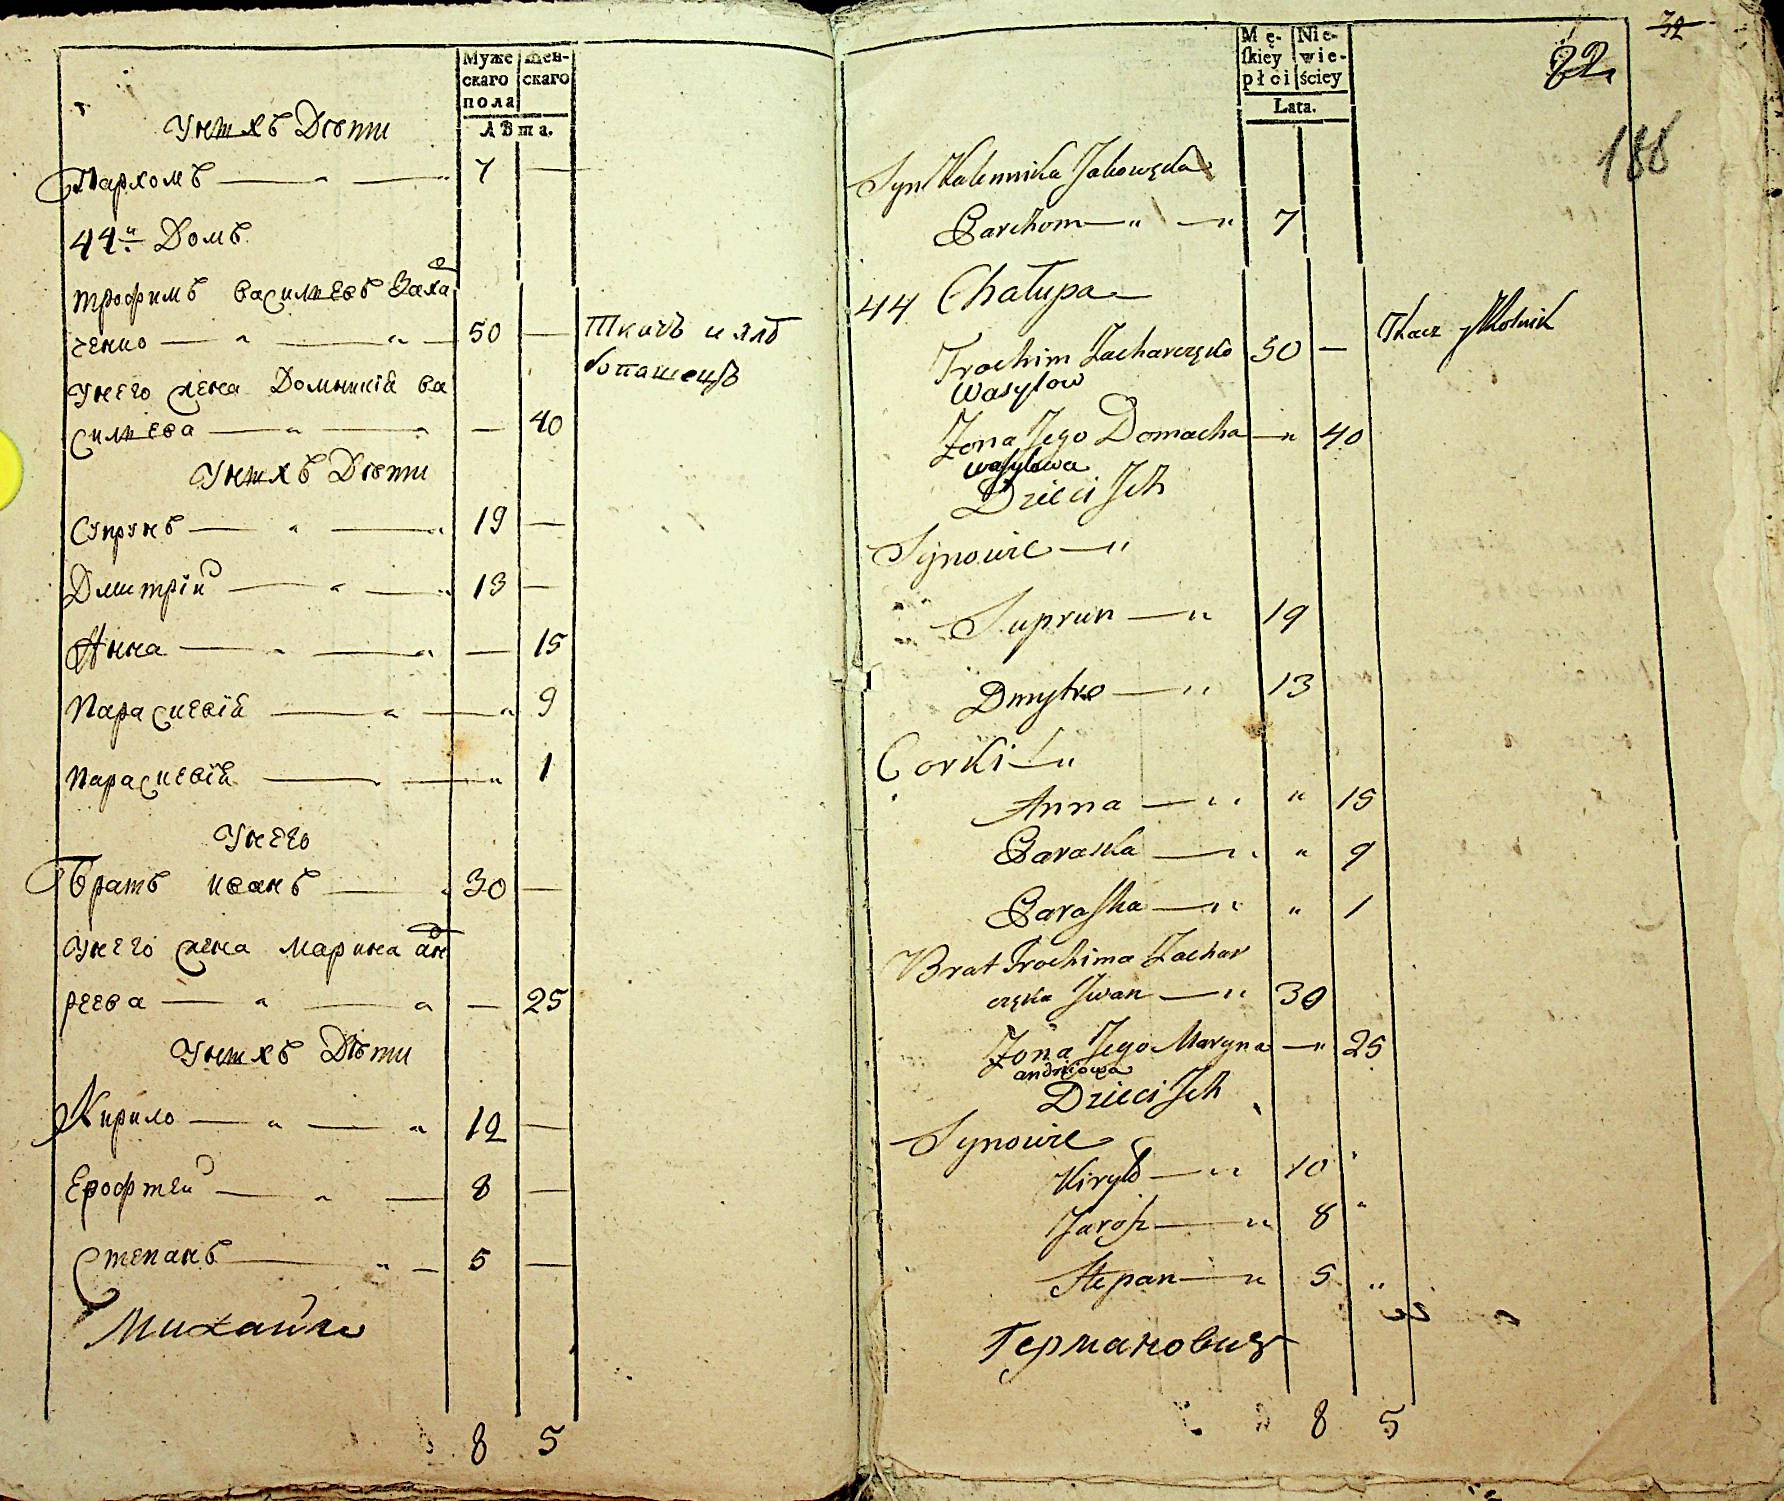 Муже
скаго
пола
Жен-
скаго
Лѣта.
Унихъ Дѣти
Пархомъ — " — 7 —
44й Домъ
трофимъ василиевъ Заха
ченко — " — " — 50 — Ткачъ и хлѣ
бопашецъ
Унего жена Домникій ва
силиева — " — " — 40
Унихъ Дѣти
Супрунъ — " — " 19 —
Дмитрій — " — " 13 —
Анна — " — " — 15
Параскевій — " — " 9
Параскевій — " — " 1
Унего
Братъ иванъ — " 30 —
Унего жена Марина ан
реева — " — " — 25
Унихъ Дѣти
Кирило — " — " 12 —
Ерофтей — " — 8 —
Степанъ — " — 5 —
Михайло
8 5
32
22
188
Mę-
ſkiey
płci
Nie-
wie-
ściey
Lata.
Syn Kalennika Jakowęka
Parchom — " — " 7
44 Chałupa —
Trochim Zacharczęko 50 — Tkacz y Rolnik
Wasylow
Zona Jego Domacha — " 40
wasylowa
Dzieci Ich
Synowie — "
Suprun — " 19
Dmytro — " 13
Corki — "
Anna — " " 15
Paraska — " " 9
Paraſka — " " 1
Brat Trochima Zachar
częka Iwan — " 30
Zona Jego Maryna — " 25
andriowa
Dzieci Ich
Synowie
Kiryło — " 10 "
Jarosz — " 8 "
Stepan — " 5 "
Германович
8 5